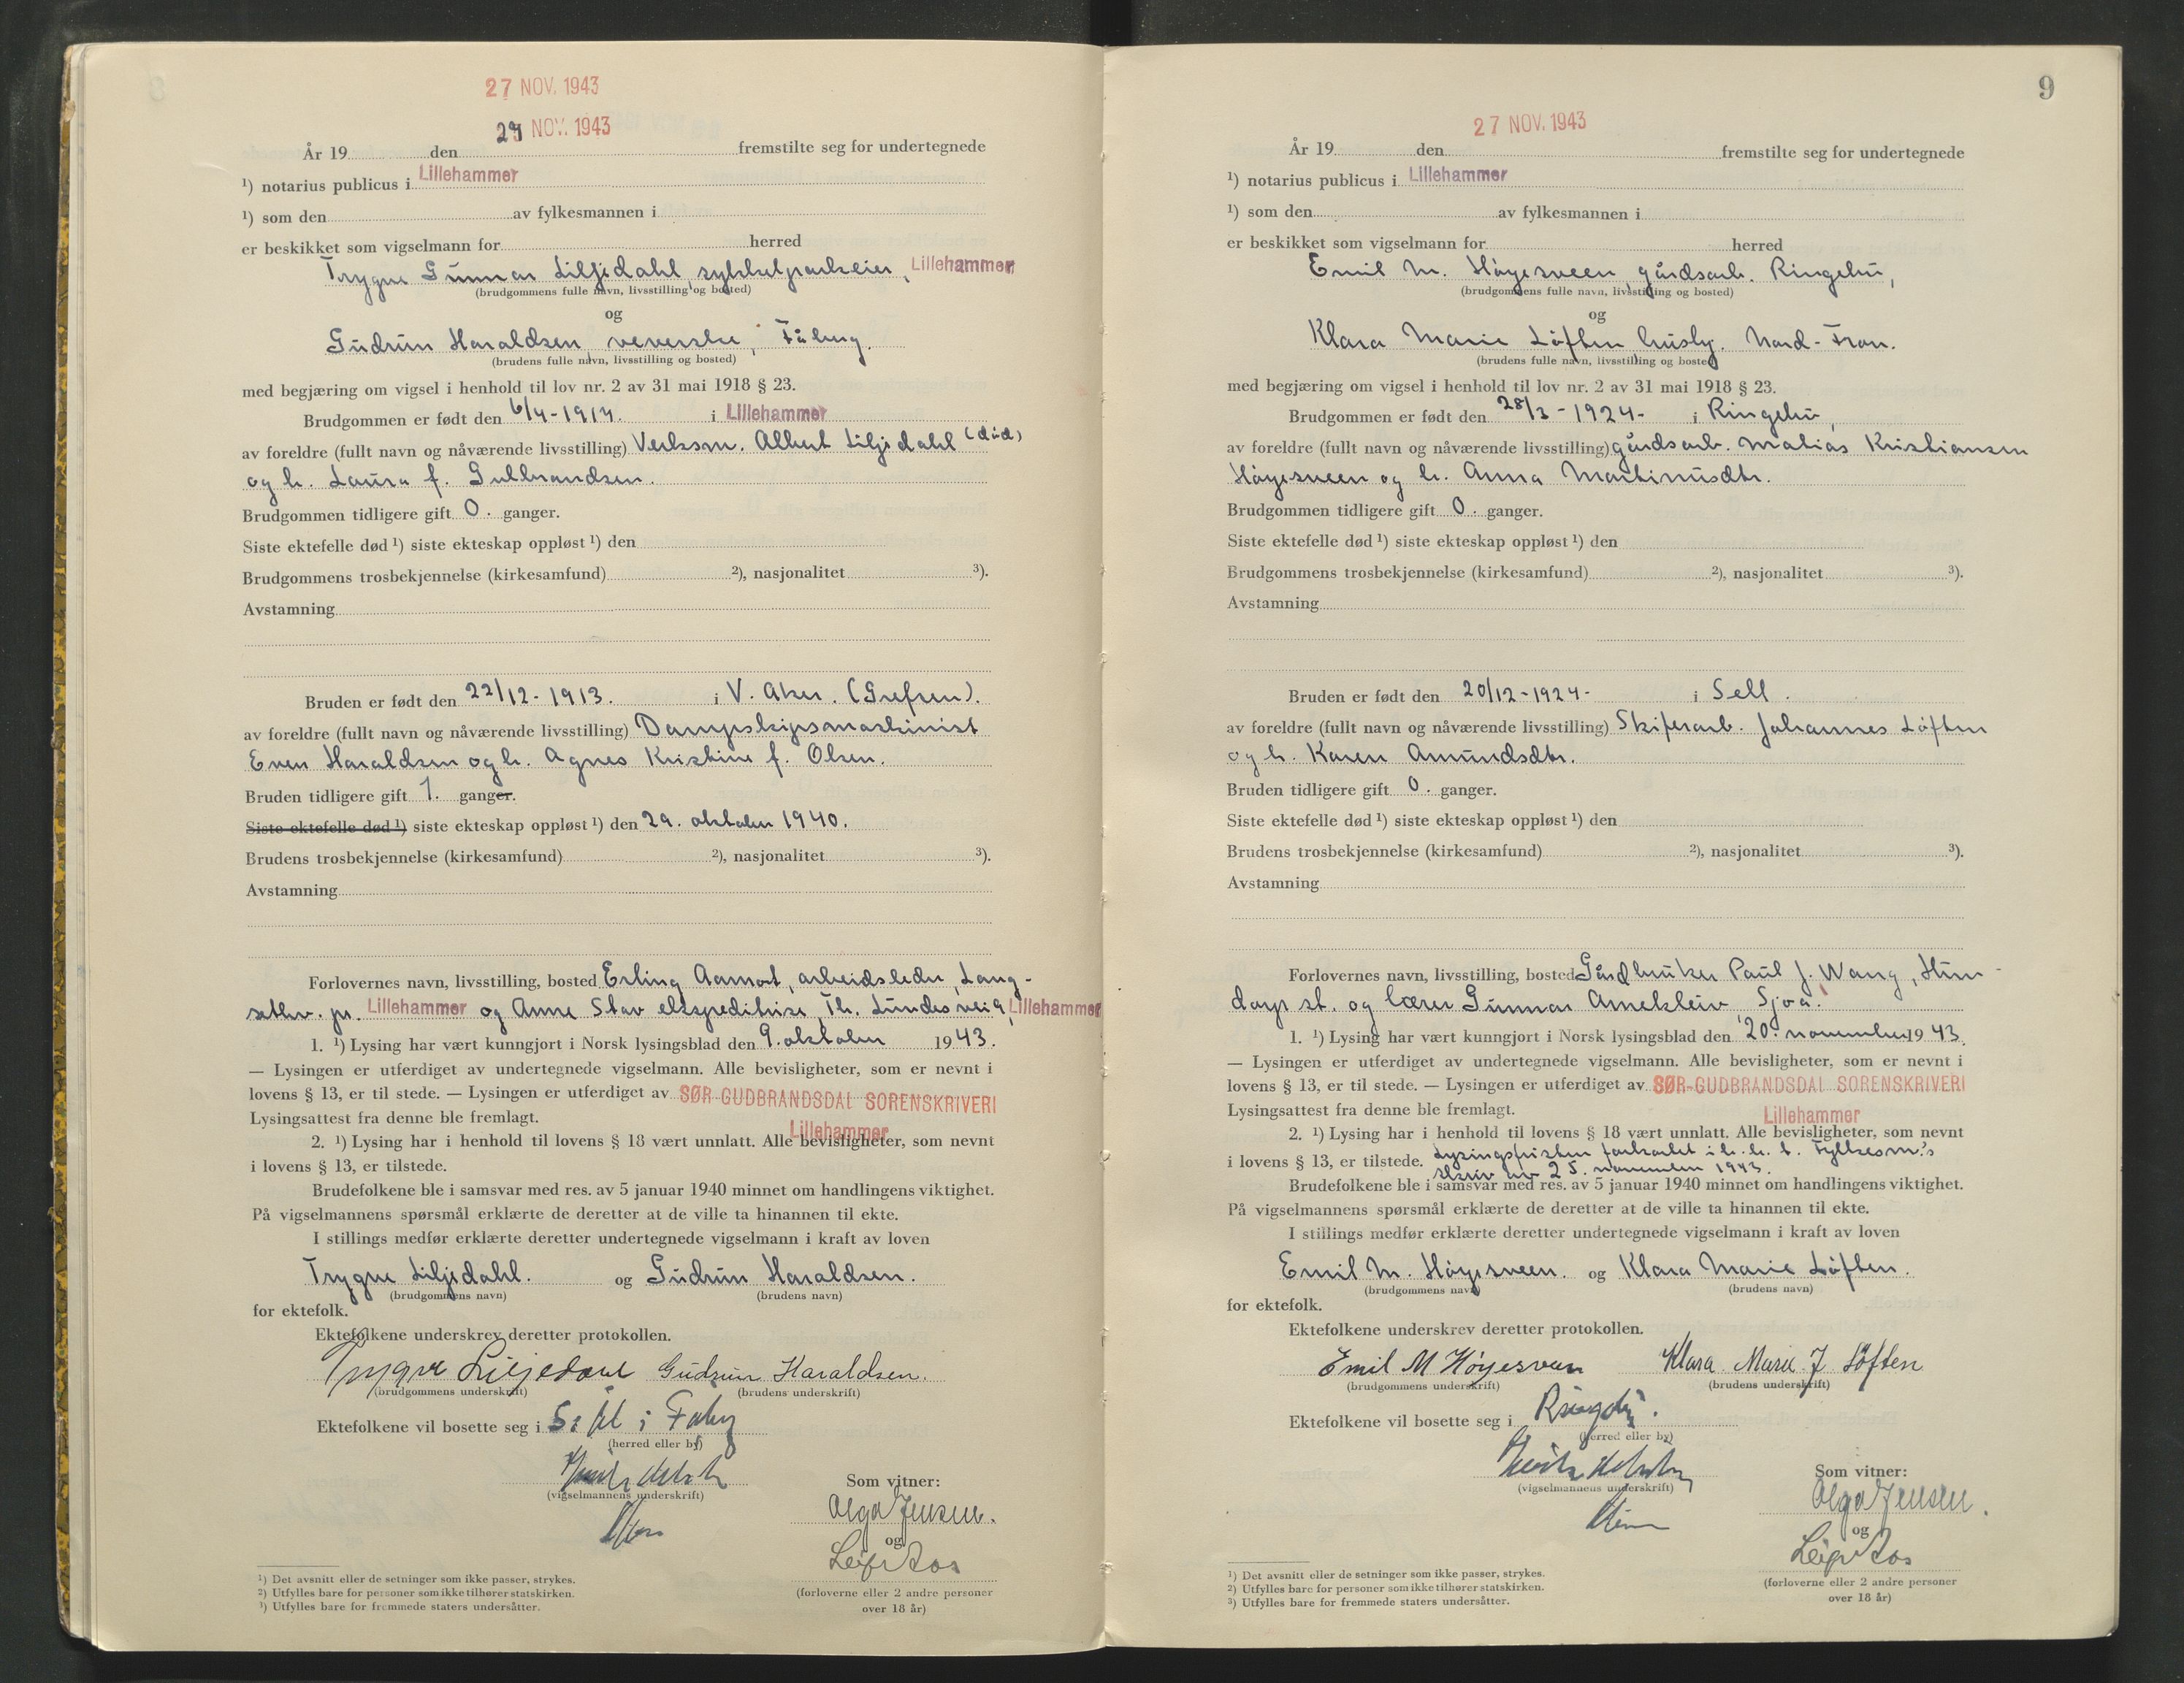 27 NOV. 1943
NOV. 1943
År 19 den fremstilte seg for undertegnede
¹) notarius publicus i Lillehammer
¹) som den av fylkesmannen i
er beskikket som vigselmann for herred
Trygve Gunnar Liljedahl sykkelparkeier, Lillehammer
(brudgommens fulle navn, livsstilling og bosted)
og
Gudrun Haraldsen veverske, Fåberg.
(brudens fulle navn, livsstilling og bosted)
med begjæring om vigsel i henhold til lov nr. 2 av 31 mai 1918 § 23.
Brudgommen er født den 6/4-1914. i Lillehammer
av foreldre (fullt navn og nåværende livsstilling) Verksm. Albert Liljedahl (død)
og h. Laura f. Gulbrandsen.
Brudgommen tidligere gift 0. ganger.
Siste ektefelle død ¹) siste ekteskap oppløst ¹) den
Brudgommens trosbekjennelse (kirkesamfund) ²), nasjonalitet ³).
Avstamning
Bruden er født den 22/12-1913. i V. Aker. (Grefsen).
av foreldre (fullt navn og nåværende livsstilling) Dampskipsmaskinist
Even Haraldsen og h. Agnes Kristine f. Olsen.
Bruden tidligere gift 1. ganger.
Siste ektefelle død ¹) siste ekteskap oppløst ¹) den 29. oktober 1940.
Brudens trosbekjennelse (kirkesamfund) ²), nasjonalitet ³).
Avstamning
Forlovernes navn, livsstilling, bosted Erling Aamot, arbeidsleder, Lang-
sethv. pr. Lillehammer og Anne Stav ekspeditrise, Th. Lundes vei 9, Lillehammer
1. ¹) Lysing har vært kunngjort i Norsk lysingsblad den 9. oktober 1943.
— Lysingen er utferdiget av undertegnede vigselmann. Alle bevisligheter, som er nevnt i
lovens § 13, er til stede. — Lysingen er utferdiget av SØR-GUDBRANDSDAL SORENSKRIVERI
Lysingsattest fra denne ble fremlagt.
Lillehammer
2. ¹) Lysing har i henhold til lovens § 18 vært unnlatt. Alle bevisligheter, som nevnt
i lovens § 13, er tilstede.
Brudefolkene ble i samsvar med res. av 5 januar 1940 minnet om handlingens viktighet.
På vigselmannens spørsmål erklærte de deretter at de ville ta hinannen til ekte.
I stillings medfør erklærte deretter undertegnede vigselmann i kraft av loven
Trygve Liljedahl. og Gudrun Haraldsen.
(brudgommens navn) (brudens navn)
for ektefolk.
Ektefolkene underskrev deretter protokollen.
Trygve Liljedahl Gudrun Haraldsen.
(brudgommens underskrift) (brudens underskrift)
Ektefolkene vil bosette seg i
(herred eller by)
Som vitner:
(vigselmannens underskrift)
Olga Jensen.
og
Leif
(forloverne eller 2 andre personer
over 18 år)
¹) Det avsnitt eller de setninger som ikke passer, strykes.
²) Utfylles bare for personer som ikke tilhører statskirken.
³) Utfylles bare for fremmede staters undersåtter.
9
27 NOV. 1943
År 19 den fremstilte seg for undertegnede
¹) notarius publicus i Lillehammer
¹) som den av fylkesmannen i
er beskikket som vigselmann for herred
Emil M. Høyesveen, gårdsarb. Ringebu,
(brudgommens fulle navn, livsstilling og bosted)
og
Klara Marie Løften husby. Nord-Fron.
(brudens fulle navn, livsstilling og bosted)
med begjæring om vigsel i henhold til lov nr. 2 av 31 mai 1918 § 23.
Brudgommen er født den 28/3-1924- i Ringebu,
av foreldre (fullt navn og nåværende livsstilling) gårdsarb. Matias Kristiansen
Høyesveen og h. Anna Martinusdtr.
Brudgommen tidligere gift 0. ganger.
Siste ektefelle død ¹) siste ekteskap oppløst ¹) den
Brudgommens trosbekjennelse (kirkesamfund) ²), nasjonalitet ³).
Avstamning
Bruden er født den 20/12-1924- i Sell.
av foreldre (fullt navn og nåværende livsstilling) Skiferarb. Johannes Løften
og h. Karen Amundsdtr.
Bruden tidligere gift 0. ganger.
Siste ektefelle død ¹) siste ekteskap oppløst ¹) den
Brudens trosbekjennelse (kirkesamfund) ²), nasjonalitet ³).
Avstamning
Forlovernes navn, livsstilling, bosted Gårdbruker Paul J. Wang, Hun-
dorp st. og lærer Gunnar Arnekleiv Sjoa.
1. ¹) Lysing har vært kunngjort i Norsk lysingsblad den 20. november 1943.
— Lysingen er utferdiget av undertegnede vigselmann. Alle bevisligheter, som er nevnt i
lovens § 13, er til stede. — Lysingen er utferdiget av SØR-GUDBRANDSDAL SORENSKRIVERI
Lysingsattest fra denne ble fremlagt.
Lillehammer
2. ¹) Lysing har i henhold til lovens § 18 vært unnlatt. Alle bevisligheter, som nevnt
i lovens § 13, er tilstede. Lysingsfristen forkortet i h. h. t. Fylkesm.'s
skriv av 25. november 1943.
Brudefolkene ble i samsvar med res. av 5 januar 1940 minnet om handlingens viktighet.
På vigselmannens spørsmål erklærte de deretter at de ville ta hinannen til ekte.
I stillings medfør erklærte deretter undertegnede vigselmann i kraft av loven
Emil M. Høyesveen. og Klara Marie Løften.
(brudgommens navn) (brudens navn)
for ektefolk.
Ektefolkene underskrev deretter protokollen.
Emil M Høyesveen Klara Marie J. Løften
(brudgommens underskrift) (brudens underskrift)
Ektefolkene vil bosette seg i Ringebu.
(herred eller by)
Som vitner:
(vigselmannens underskrift)
Olga Jensen.
og
Leif
(forloverne eller 2 andre personer
over 18 år)
¹) Det avsnitt eller de setninger som ikke passer, strykes.
²) Utfylles bare for personer som ikke tilhører statskirken.
³) Utfylles bare for fremmede staters undersåtter.